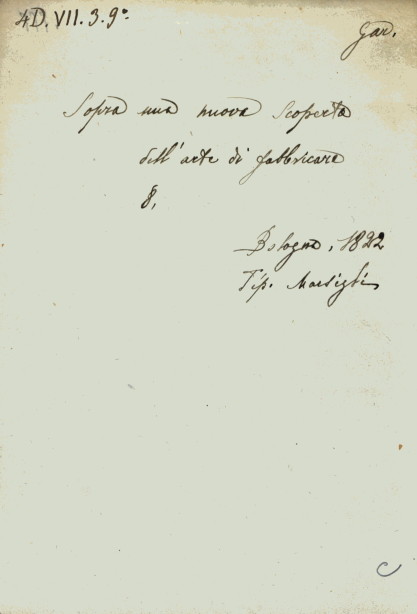 4D.VII.3.9°
Gar.
Sopra una nuova scoperta
dell'arte di fabbricare
8,
Bologna, 1822
Tip. Marsigli